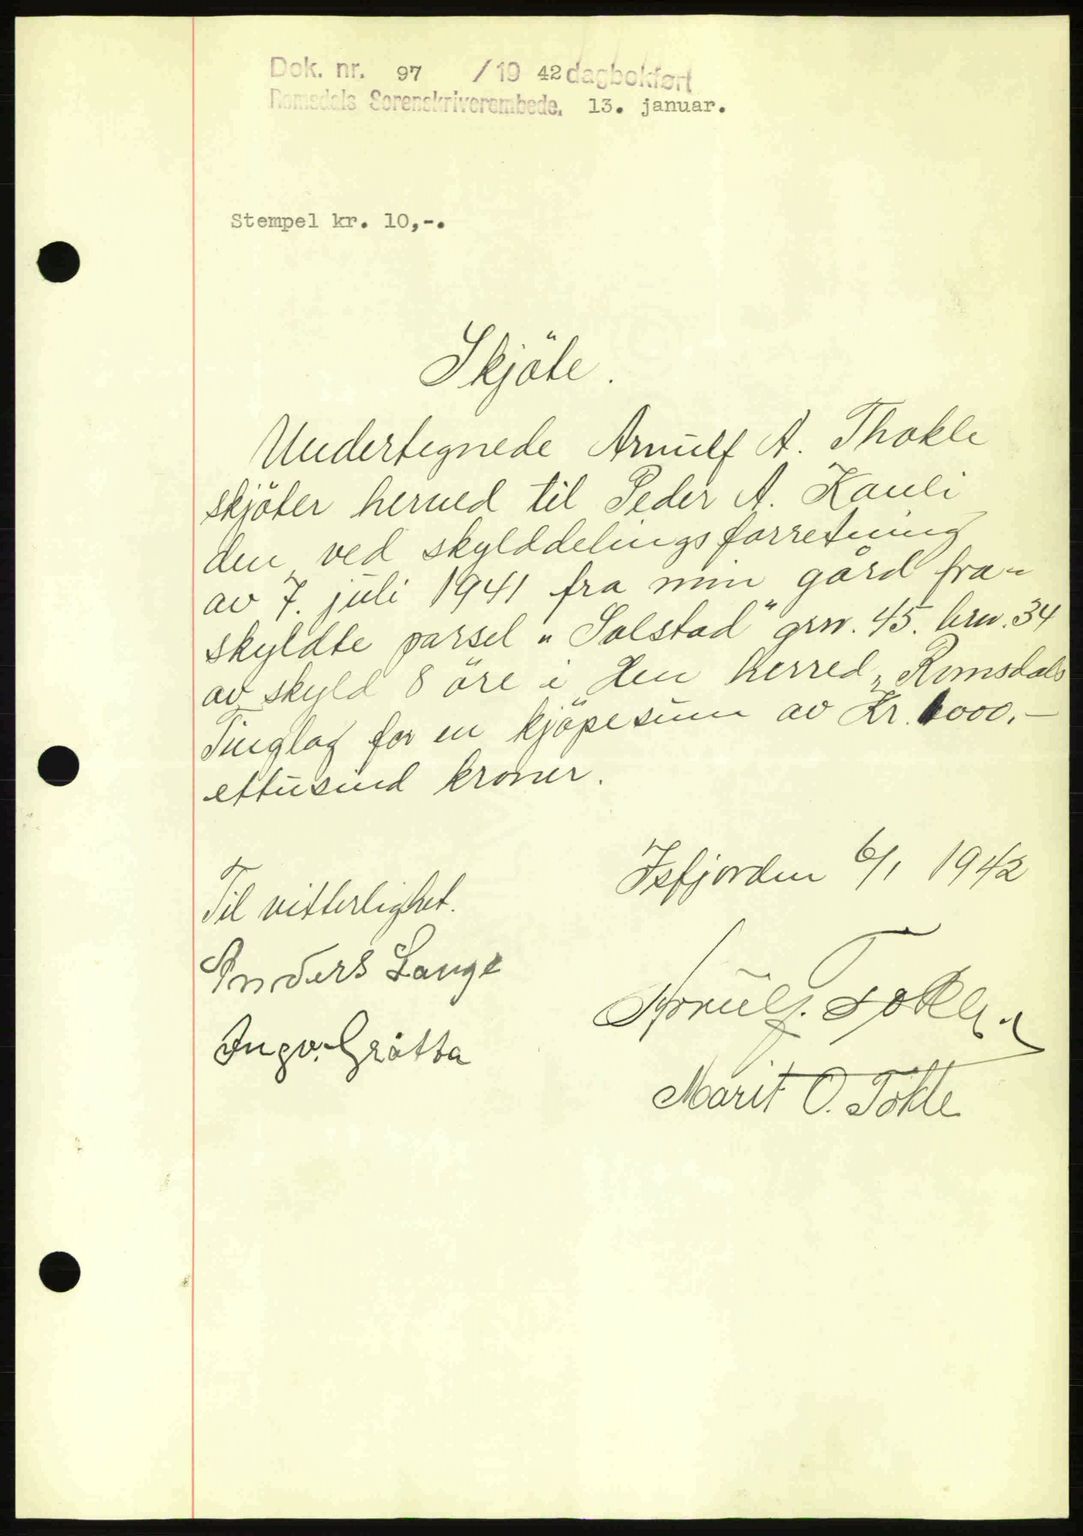 Dok. nr. 97 /19 42 dagbokført
Romsdals Sorenskriverembede, 13. januar.
Stempel kr. 10,-.
Skjöte.
Undertegnede Arnulf A. Thokle
skjöter herved til Peder A. Kauli
den ved skylddelingsforretning
av 7. juli 1941 fra min gård fra-
skyldte parsel „Solstad" grn. 45. brn. 34
av skyld 8 öre i Hen herred, Romsdals
Tinglag for en kjöpesum av Kr. 1000.–
ettusind kroner.
Isfjorden 6/1 1942
Til vitterlighet.
Anders Lange
Arnulf. Tokle.
Ingv. Gråtta
Marit O. Tokle